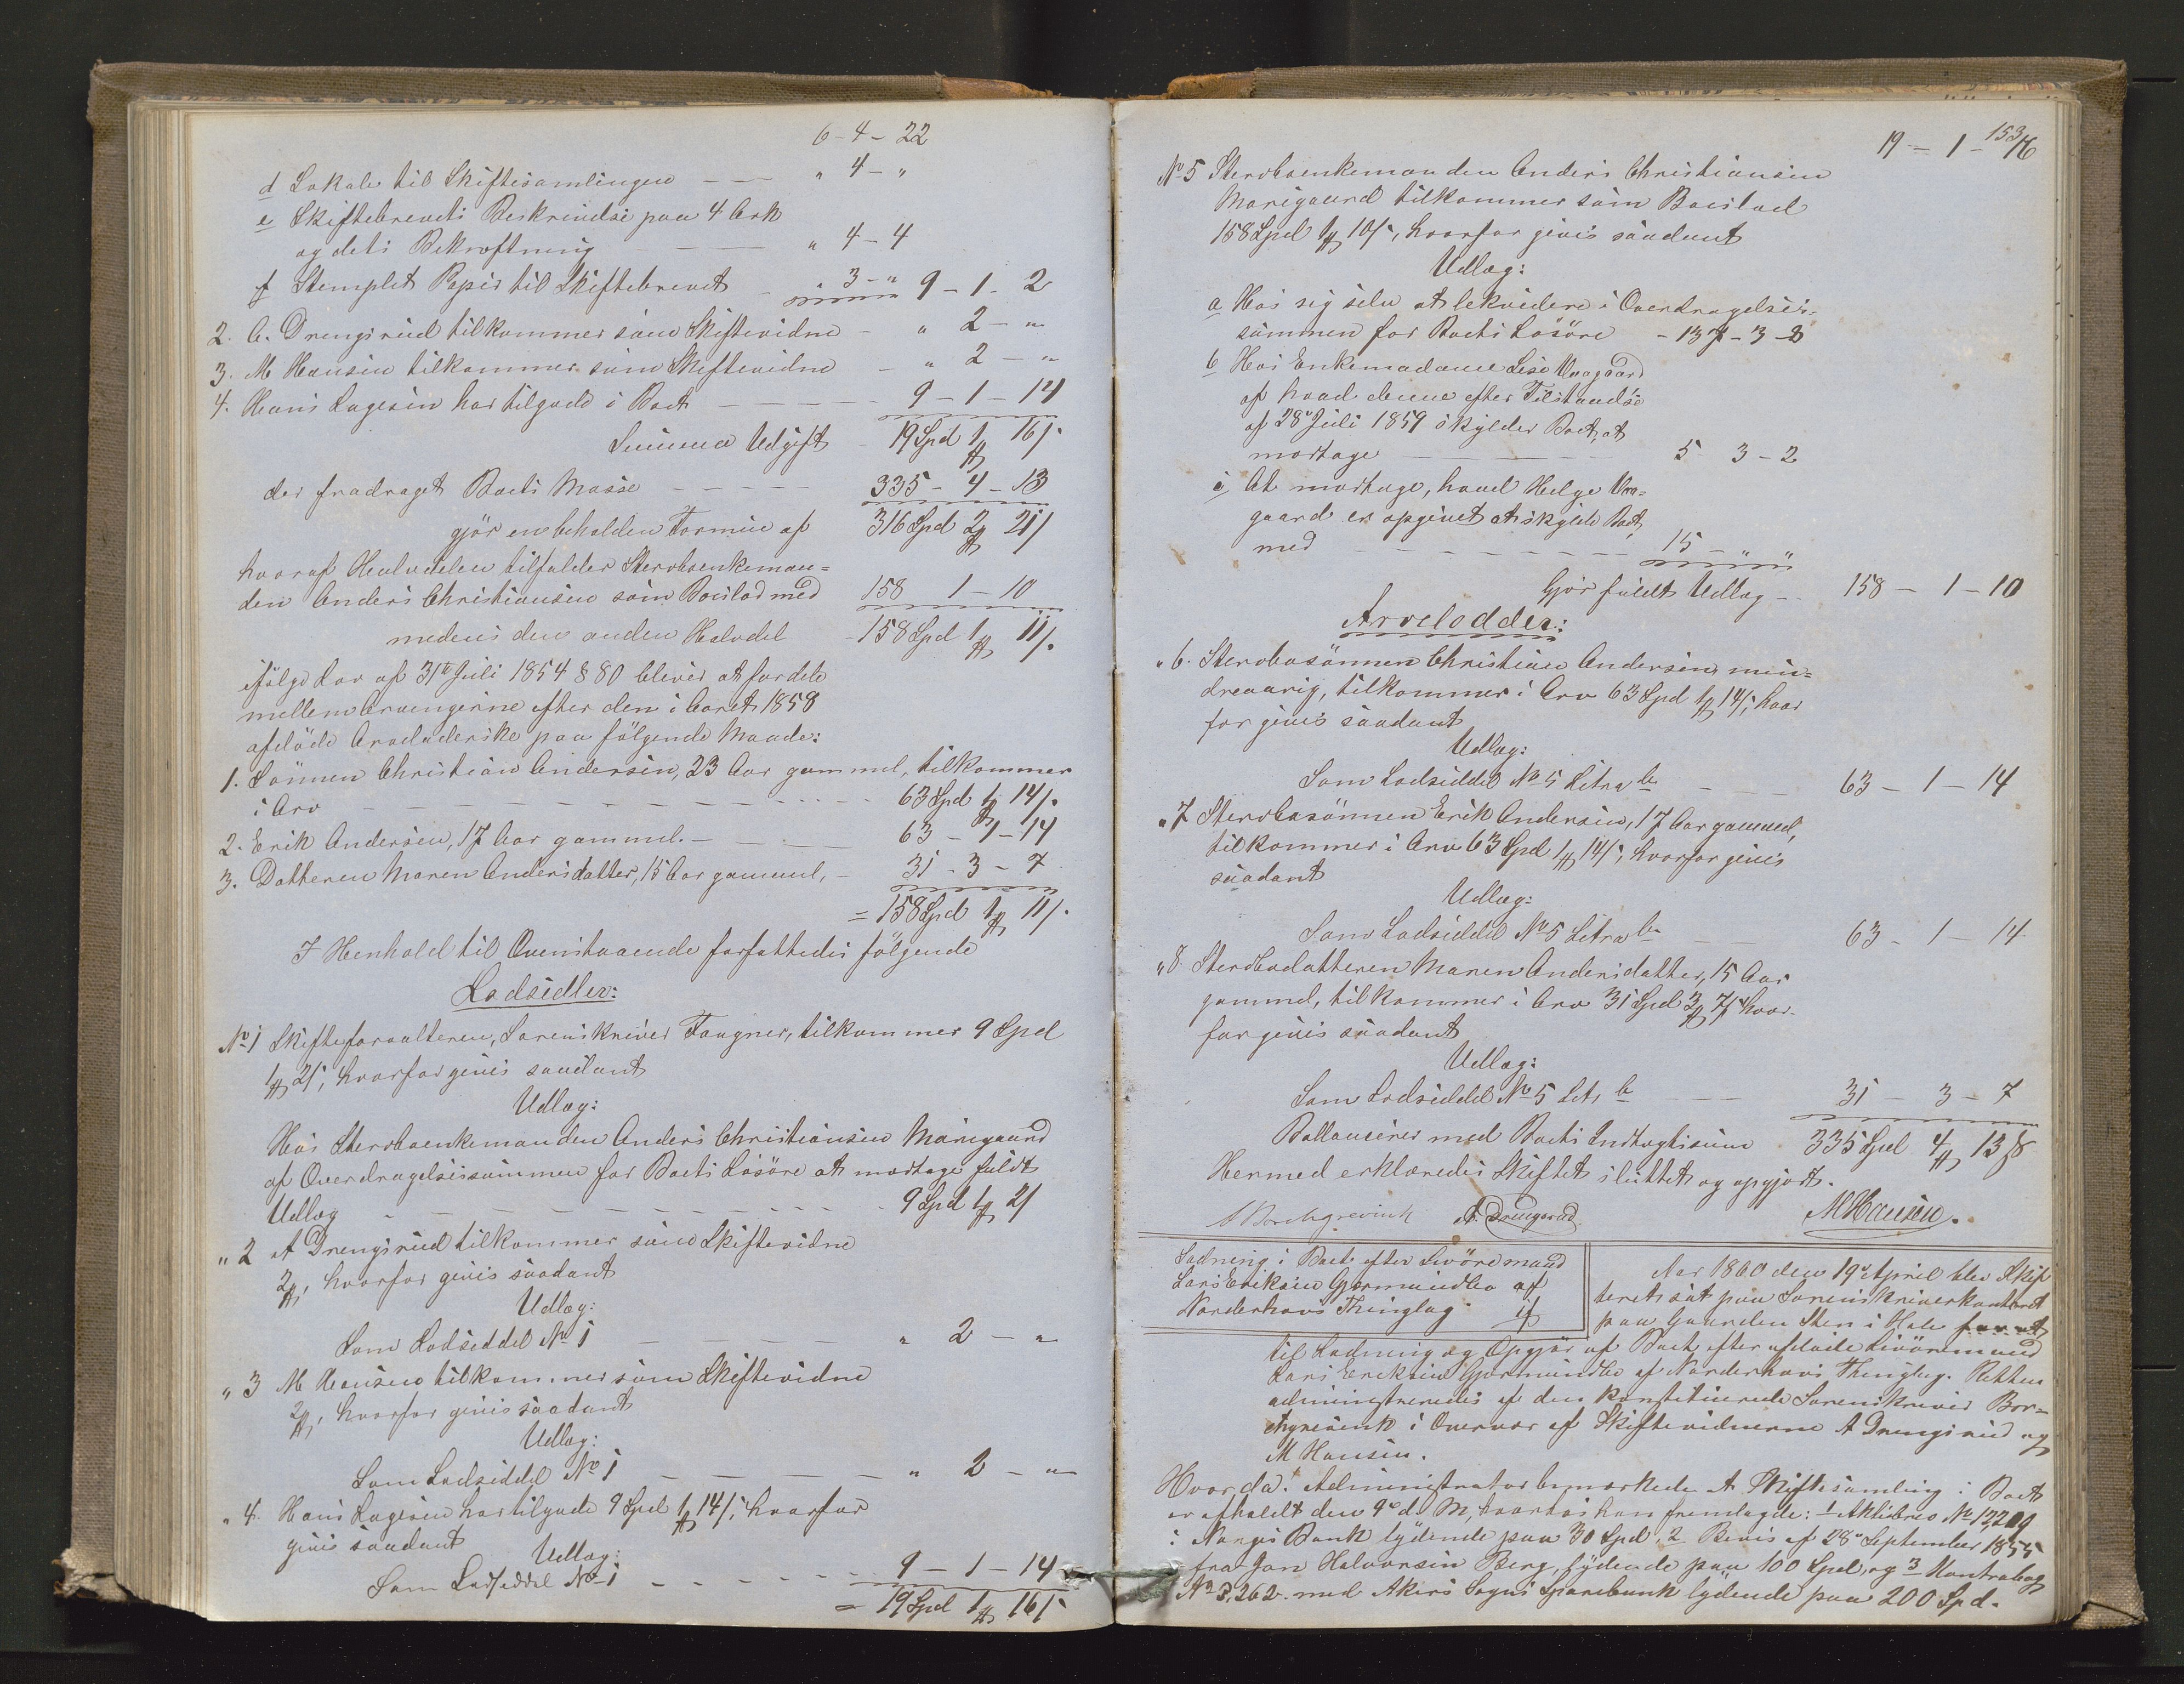 6 - 4 - 22
d Lokale til Skiftesamlingen — " 4 - "
e Skiftebrevets Beskrivelse paa 4 Ark
og dets Bekræftning — " 4 - 4
f Stemplet Papir til Skiftebrevet - " 3 - " 9 - 1 - 2
2. A. Drengsrud tilkommer som Skiftevidne - " 2 - "
3. M Hansen tilkommer som Skiftevidne - " 2 - "
4. Hans Lagesen har tilgode i Boet — 9 - 1 - 14
Summa Udgift - 19 Spd 1 # 16 /.
der fradraget Boets Masse — 335 - 4 - 13
gjør en beholden Formue af 316 Spd 2 # 21 /
hvoraf Halvdelen tilfalder Sterbbenkeman=
den Anders Christiansen som Boeslod med 158 1 - 10
medens den anden Halvdel - 158 Spd 1 # 11 /.
ifølge Lov af 31te Juli 1854 § 80 bliver at fordele
mellem Arvingerne efter den i Aaret 1858
afdøde Arveladerske paa følgende Maade:
1. Sønnen Christian Andersen, 23 Aar gammel, tilkommer
i Arv — 63 Spd 1 # 14 /.
2. Erik Andersen, 17 Aar gammel. — 63 - 1 - 14
3. Datteren Maren Andersdatter, 15 Aar gammel, - 31 - 3 - 7
= 158 Spd 1 # 11 /.
I Henhold til Ovenstaaende forfattedes følgende
Lodsedler:
No 1 Skifteforvalteren, Sorenskriver Faugner, tilkommer 9 Spd
1 # 2 /, hvorfor gives saadant
Udlæg:
Hos Sterbboenkemanden Anders Christiansen Moregaard
af Overdragelsessummen for Boets Løsøre at modtage fuldt
Udlæg — 9 Spd 1 # 2 /
" 2 A Drengsrud tilkommer som Skiftevidne
2 #, hvorfor gives saadant
Udlæg:
Som Lodseddel No 1 — " 2 - "
" 3 M Hansen tilkommer som Skiftevidne
2 #, hvorfor gives saadant
Udlæg:
Som Lodseddel No 1 — " 2 - "
" 4. Hans Lagesen har tilgode 9 Spd 1 # 14 /, hvorfor
gives saadant
Udlæg:
Som Lodseddel No 1 — 9 - 1 - 14
= 19 Spd 1 # 16 /.
153
19 - 1 - 16
No 5 Sterbboenkemanden Anders Christiansen
Moregaard tilkommer som Boeslod
158 Spd 1 # 10 /, hvorfor gives saadant
Udlæg:
a Hos sig selv at lekvidere i Overdragelses=
summen for Boets Løsøre - 137 - 3 - 8
b Hos Enkemadame Lise Moegaard
af hvad denne efter Tilstaaelse
af 28de Juli 1859 skylder Boet, at
modtage — 5 3 - 2
c At modtage, hvad Helge Mo=
gaard er opgivet at skylde Boet
med — 15 - " "
Gjør fuldt Udlæg — 158 - 1 - 10
Arvelodder:
" 6. Sterbbosønnen Christian Andersen, min=
dreaarig, tilkommer i Arv 63 Spd 1 # 14 /, hvor
for gives saadant
Udlæg:
Som Lodseddel No 5 Litra b — 63 - 1 - 14
" 7 Sterbbosønnen Erik Andersen, 17 Aar gammel,
tilkommer i Arv 63 Spd 1 # 14 /, hvorfor gives
saadant
Udlæg:
Som Lodseddel No 5 Litra b — 63 - 1 - 14
" 8. Sterbbodatteren Maren Andersdatter, 15 Aar
gammel, tilkommer i Arv 31 Spd 3 # 7 /, hvor-
for gives saadant
Udlæg:
Som Lodseddel No 5 Litr b — 31 - 3 - 7
Ballancerer med Boets Indtægtssum 335 Spd 4 # 13 ß
Hermed erklæredes Skiftet sluttet og opgjort.
Borchgrevink A. Drengsrud. M Hansen.
Lodning i Boet efter Livøremand
Lars Eriksen Gjermundbo af
Norderhovs Thinglag.
Aar 1860 den 19de April blev Skif
teret sat paa Sorenskriverkontoret
paa Gaarden Sten i Hole for at
til Lodning og Opgjør af Boet efter afdøde Livøremand
Lars Eriksen Gjermundbo af Norderhovs Thinglag. Retten
administreredes af den konstituerede Sorenskriver Bor=
chgrevink i Overvær af Skiftevidnerne A Drengsrud og
M Hansen.
Hvorda: Administrator bemærkede At Skiftesamling i Boet
er afholdt den 9de d. M, hvorhos han fremlagde: 1 Aktiebrev No 12209
i Norges Bank lydende paa 30 Spd, 2 Bevis af 28de September 1855
fra Jon Halvorsen Berg, lydende paa 100 Spd, og 3 Kontrabog
No 3,262. med Akers Sogns Sparebank lydende paa 200 Spd.